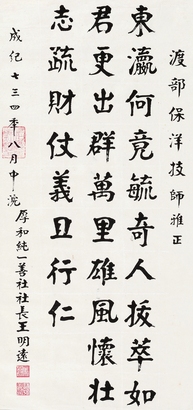 渡部保洋技師雅正
東瀛何竟毓奇人拔萃如
君更出群萬里雄風懷壯
志疏財仗義且行仁
成紀七三四年八月中浣
厚和純一善社社長王明遠